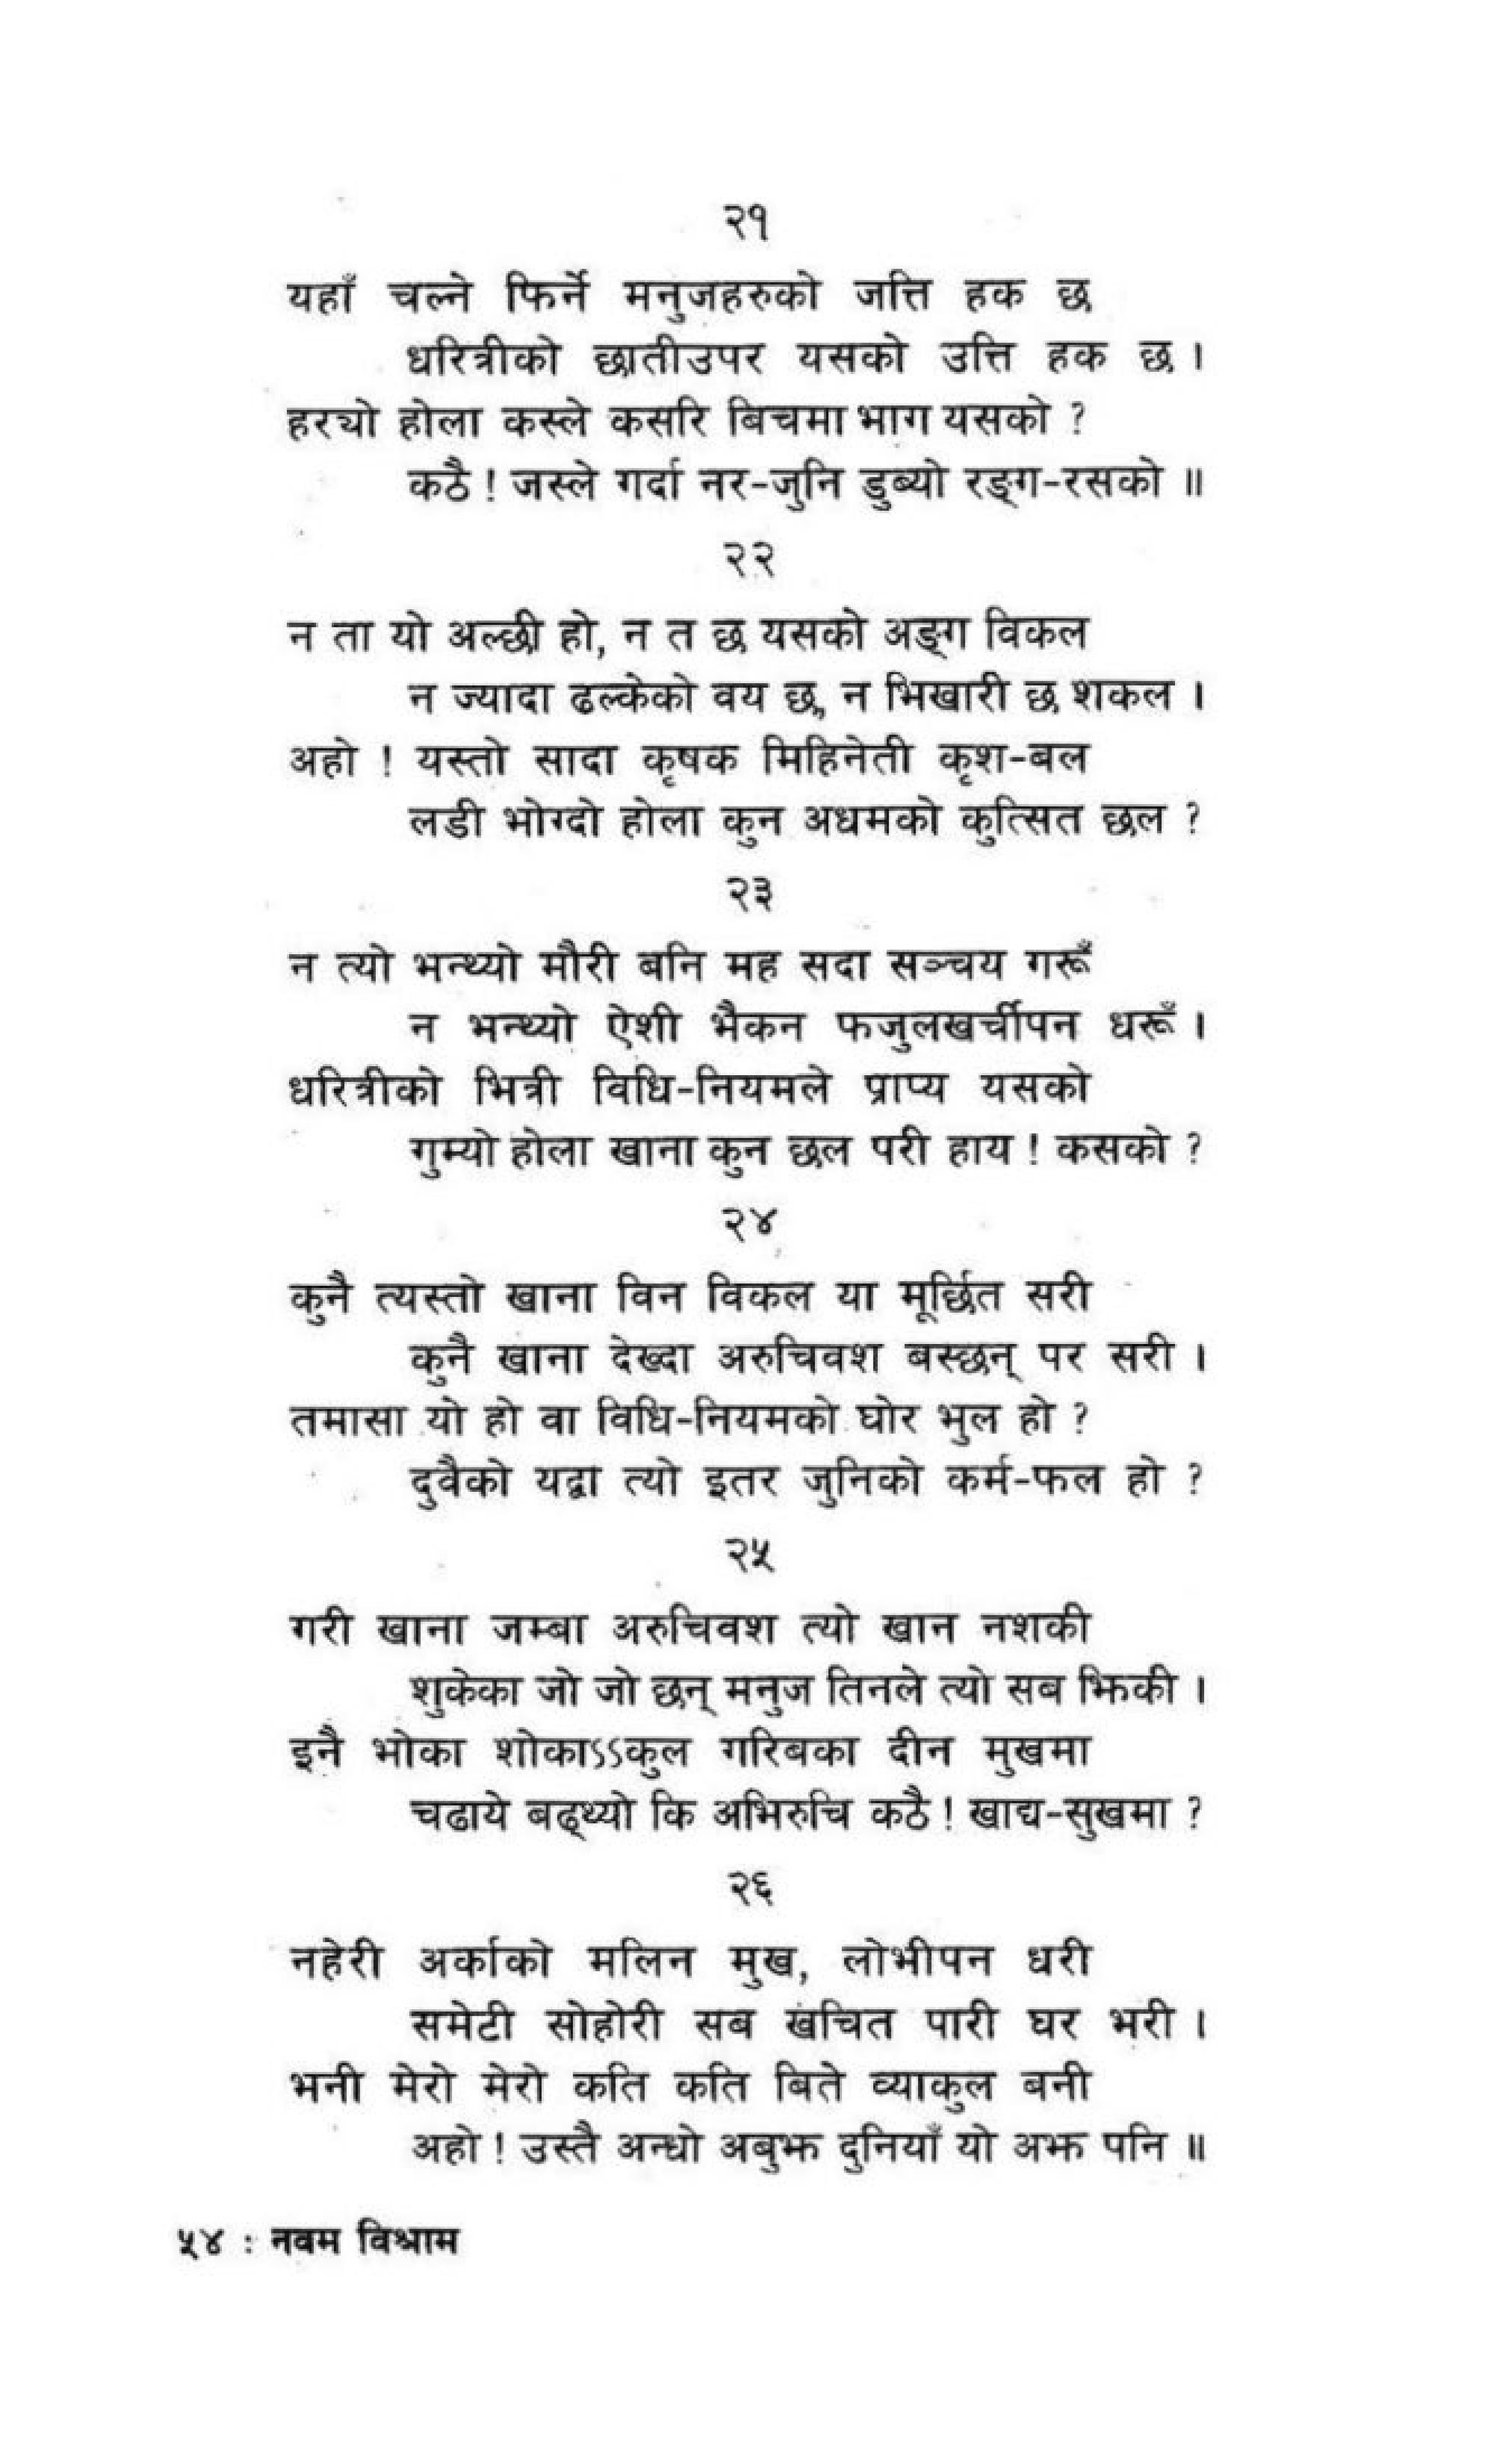 २१
यहाँ चल्ने फिर्ने मनुजहरुको जत्ति हक छ
धरित्रीको छातीउपर यसको उत्ति हक छ ।
हर्‍यो होला कस्ले कसरि बिचमा भाग यसको ?
कठै ! जस्ले गर्दा नर-जुनि डुब्यो रङ्ग-रसको ॥
२२
न ता यो अल्छी हो, न त छ यसको अङ्ग विकल
न ज्यादा ढल्केको वय छ, न भिखारी छ शकल ।
अहो ! यस्तो सादा कृषक मिहिनेती कृश-बल
लडी भोग्दो होला कुन अधमको कुत्सित छल ?
२३
न त्यो भन्थ्यो मौरी बनि मह सदा सञ्चय गरूँ
न भन्थ्यो ऐशी भैकन फजुलखर्चीपन धरूँ ।
धरित्रीको भित्री विधि-नियमले प्राप्य यसको
गुम्यो होला खाना कुन छल परी हाय ! कसको ?
२४
कुनै त्यस्तो खाना विन विकल या मूर्छित सरी
कुनै खाना देख्दा अरुचिवश बस्छन् पर सरी ।
तमासा यो हो वा विधि-नियमको घोर भुल हो ?
दुवैको यद्वा त्यो इतर जुनिको कर्म-फल हो ?
२५
गरी खाना जम्बा अरुचिवश त्यो खान नशकी
शुकेका जो जो छन् मनुज तिनले त्यो सब झिकी ।
इनै भोका शोकाऽऽकुल गरिबका दीन मुखमा
चढाये बढ्थ्यो कि अभिरुचि कठै ! खाद्य-सुखमा ?
२६
नहेरी अर्काको मलिन मुख, लोभीपन धरी
समेटी सोहोरी सब खचित पारी घर भरी ।
भनी मेरो मेरो कति कति बिते व्याकुल बनी
अहो ! उस्तै अन्धो अबुझ दुनियाँ यो अझ पनि ॥
५४ : नवम विश्राम